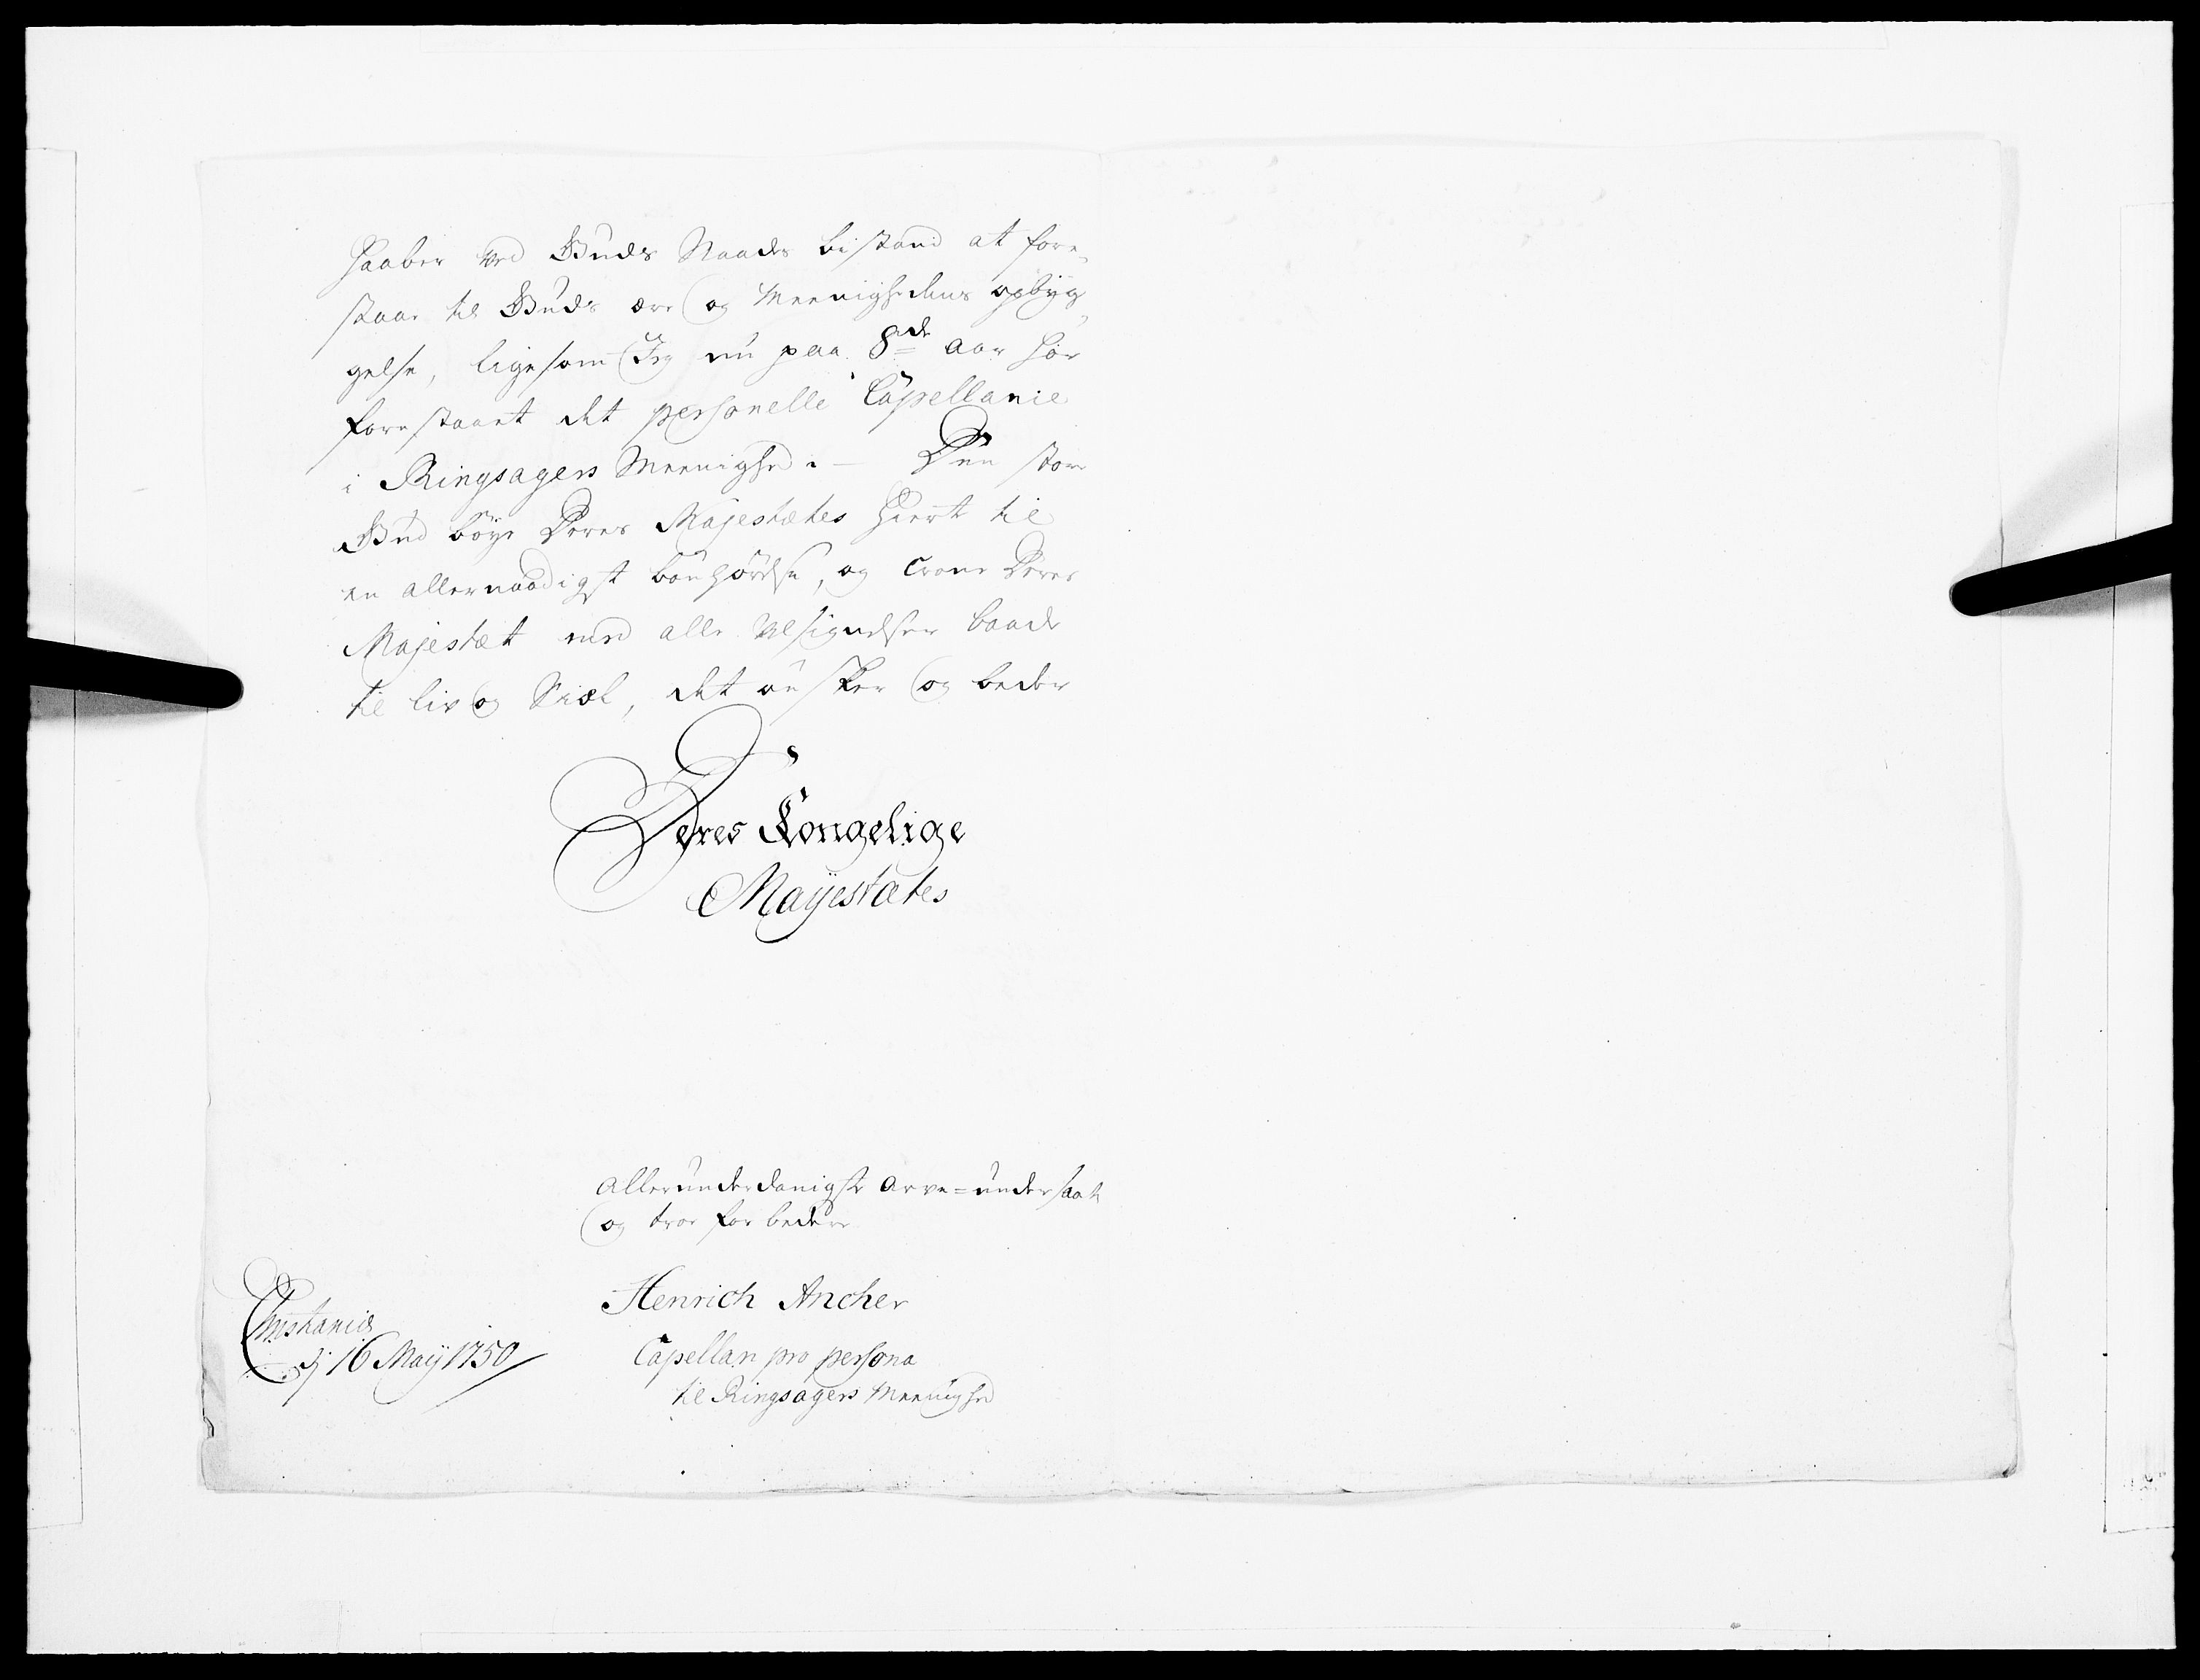 haaber ved Guds Naades bistand at fore-
staae til Guds ære og Meenighedens opbyg-
gelse, ligesom Jeg nu paa 8de aar har
forestaaet det personelle Capellanie
i Ringsagers Meenighed. — Den store
Gud böye Deres Majestætes Hiert til
en allernaadigst bönhörelse, og Crone Deres
Majestæt med alle Velsignelser baade
til liv og Siæl, det ønsker og beder
Deres Kongelige
Mayestætes
allerunderdanigste arve=undersaat
og troe forbedere
Henrich Ancher
Christania
dj 16 Maij 1750
Capellan pro persona
til Ringsagers Meenighed